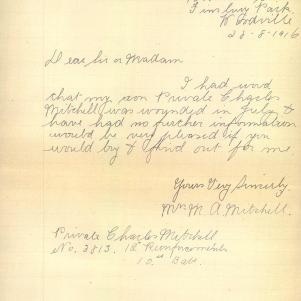 Finsbury Park
W Woodville
23-8-1916
Dear Sir or Madam
I had word
that my son Private Charles
Mitchell was wounded in July &
have had no further information
would be very pleased if you
would try & find out for me
Yours Very Sincerely
Mrs M. A Mitchell.
Private Charles Mitchell
No. 3813. 12 Reinforcements
10th Batt.